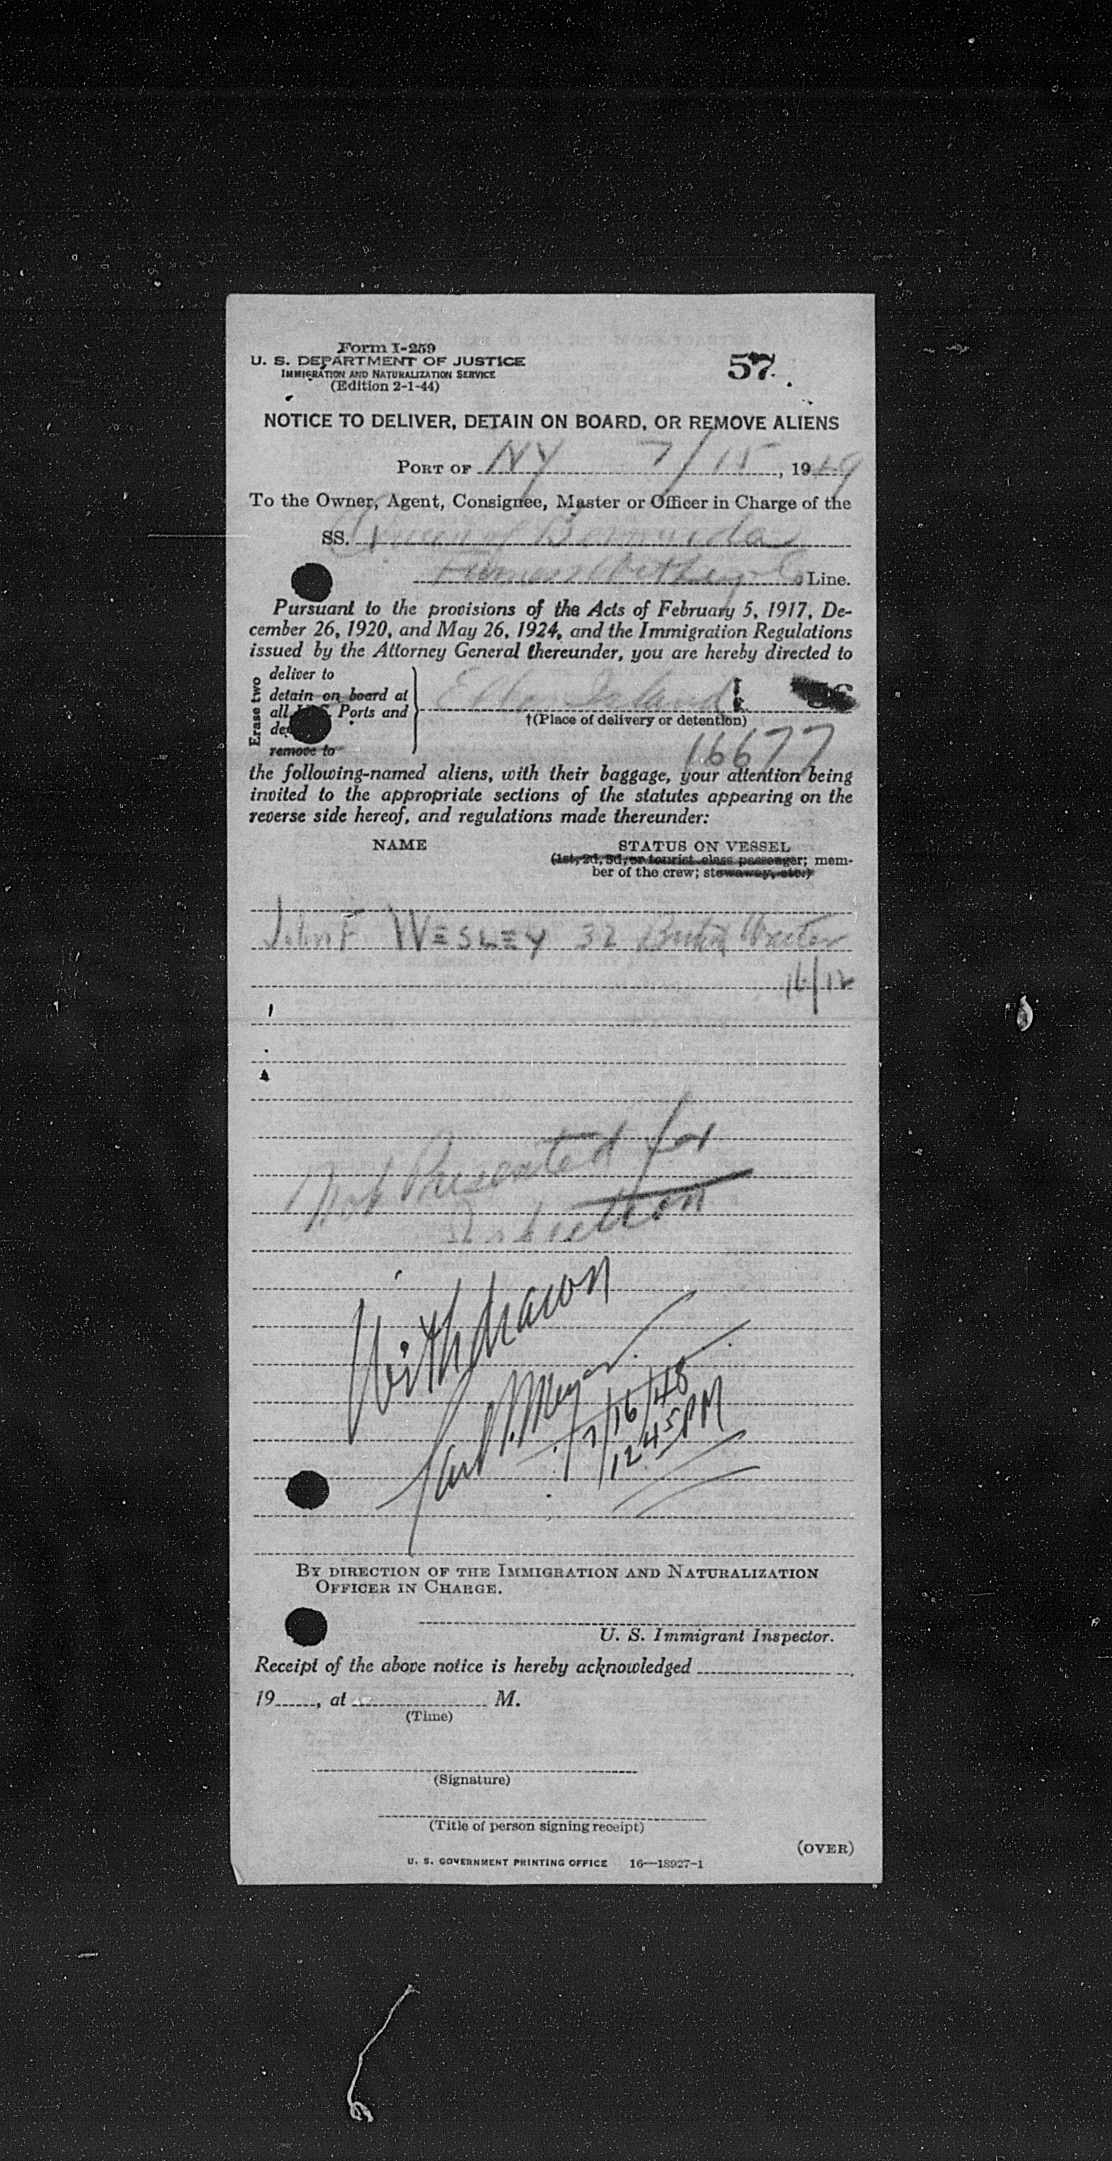 Form I-259
U. S. DEPARTMENT OF JUSTICE
IMMIGRATION AND NATURALIZATION SERVICE
(Edition 2-1-44)
57
NOTICE TO DELIVER, DETAIN ON BOARD, OR REMOVE ALIENS
PORT OF NY 7/15, 1949
To the Owner, Agent, Consignee, Master or Officer in Charge of the
SS. Queen of Bermuda
Furness Line.
Pursuant to the provisions of the Acts of February 5, 1917, De-
cember 26, 1920, and May 26, 1924, and the Immigration Regulations
issued by the Attorney General thereunder, you are hereby directed to
Erase two
deliver to
detain on board at
all Ports and
remove to
Ellis Island
†(Place of delivery or detention)
16677
the following-named aliens, with their baggage, your attention being
invited to the appropriate sections of the statutes appearing on the
reverse side hereof, and regulations made thereunder:
NAME STATUS ON VESSEL
(1st, 2d, 3d, or tourist class passenger; mem-
ber of the crew; stowaway, etc.)
John F WESLEY 32 British Waiter
16/12
Not Presented for
Withdrawn
Meyer
7/16/48
12 45 PM
BY DIRECTION OF THE IMMIGRATION AND NATURALIZATION
OFFICER IN CHARGE.
U. S. Immigrant Inspector.
Receipt of the above notice is hereby acknowledged
19, at M.
(Time)
(Signature)
(Title of person signing receipt)
(OVER)
U. S. GOVERNMENT PRINTING OFFICE 16—18927-1